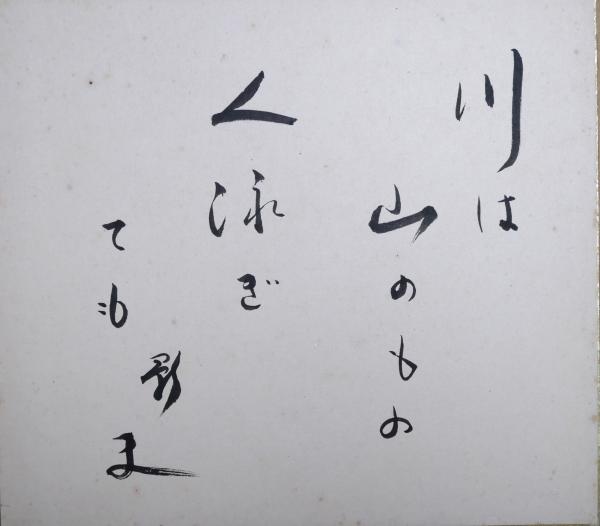 川は
山のもの
人泳ぎ
ても